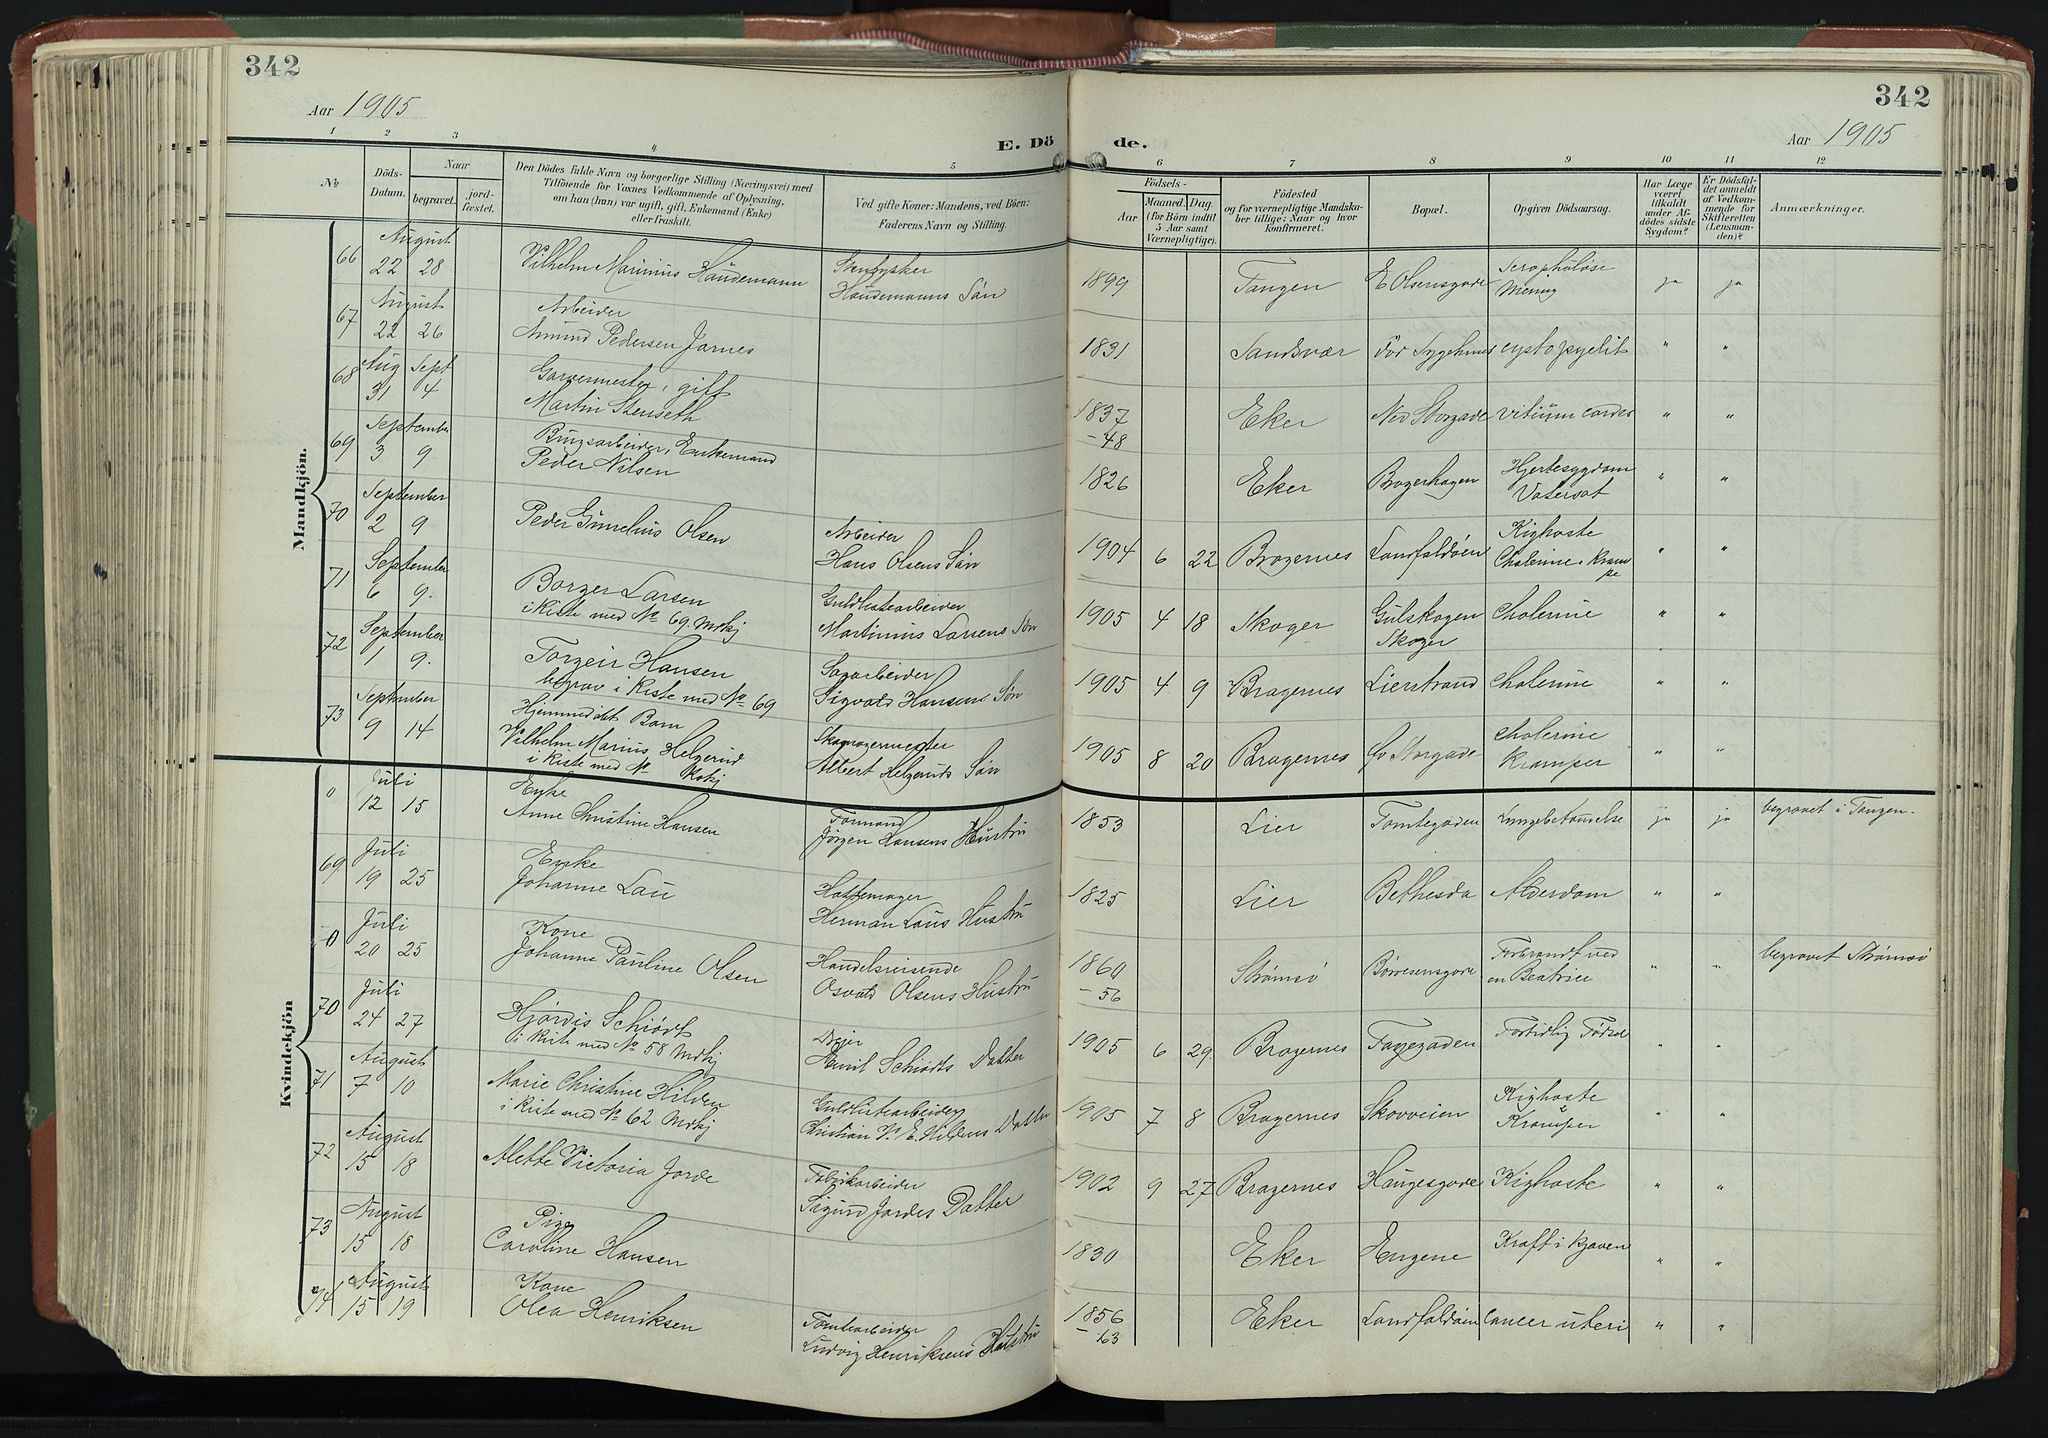 342
342
Aar 1905
Aar 1905
E. Dö
de.
1 2 3 4 5
6 7 8 9 10 11 12
No
Döds-Datum.
Naar
begravet.
jord-fæstet.
Den Dödes fulde Navn og borgerlige Stilling (Næringsvei) med
Tilföiende for Voxnes Vedkommende af Oplysning,
om han (hun) var ugift, gift, Enkemand (Enke)
eller fraskilt.
Ved gifte Koner: Mandens, ved Börn:
Faderens Navn og Stilling.
Födsels-
Aar
Maaned. Dag.
(for Börn indtil
5 Aar samt
Værnepligtige).
Födested
og for værnepligtige Mandska-
ber tillige: Naar og hvor
konfirmeret.
Bopæl.
Opgiven Dödsaarsag.
Har Læge
været
tilkaldt
under Af-
dödes sidste
Sygdom?
Er Dödsfal-
det anmeldt
af Vedkom-
mende for
Skifteretten
(Lensman-
den)?
Anmærkninger.
Mandkjön.
66 August 22 28 Vilhelm Marinius Haudemann
Haudemanns Søn 1899 Tangen E Olsensgade ja ja
67 August 22 26 Arbeider
Amund Pedersen Jarnes 1831 Sandsvær Sygehus cystopyelit " "
68 Aug 31 Sept 4 Garvermester, gift
Martin Stenseth 1837 -48 Eker Ned Storgade vitium cordis " "
69 September 3 9 Brugsarbeider, Enkemand
Peder Nilsen 1826 Eker Bragerhagen Hjertesygdom
Vatersot " "
70 September 2 9 Peder Gunelius Olsen Arbeider
Hans Olsens Søn 1904 6 22 Bragernes Landfaldøen Kighoste
Cholerine Krampe " "
71 September 6 9. Borger Larsen
i Kiste med No 69. Mdkj Guldlistearbeider
Martinius Larsens Søn 1905 4 18 Skoger Gulskogen
Skoger Cholerine " "
72 September 1 9. Torgeir Hansen
begrav i Kiste med No 69 Sagarbeider
Sigvald Hansens Søn 1905 4 9 Bragernes Lierstrand Cholerine " "
73 September 9 14 Hjemmedøbt Barn
Vilhelm Marius Helgerud
i Kiste med No Kvkj
Albert Helgeruds Søn 1905 8 20 Bragernes Storgade Cholerine
Kramper " "
Kvindekjön
" Juli 12 15 Enke
Anne Christine Hansen Formand
Jørgen Hansens Hustru 1853 Lier Tomtegaden Lungebetændelse ja ja begravet i Tangen
69. Juli 19 25 Enke
Johanne Lau Hattemager
Herman Laus Hustru 1825 Lier Bethesda Alderdom " "
0 Juli 20 25 Kone
Johanne Pauline Olsen Handelsreisende
Osvald Olsens Hustru 1860 -56 Strømsø Børresensgade Forbrændt ved
en Beatrice " " begravet Strømsø
70 Juli 24 27 Hjørdis Schiødt
i Kiste med No 58 Mdkj Dreier
Emil Schiødts Datter 1905 6 29 Bragernes Fayegaden Fortidlig Fødsel " "
71 August 7 10 Marie Christine Hilden
i Kiste med No 62 Mdkj Guldlistearbeider
Christian E. Hildens Datter 1905 7 8 Bragernes Skovveien Kighoste
Kramper " "
72 August 15 18 Alette Victoria Jorde Fabrikarbeider
Sigurd Jordes Datter 1902 9 27 Bragernes Haugesgade Kighoste " "
73 August 15 18 Pige
Caroline Hansen 1830 Eker Engene Kræft i Maven " "
74 August 15 19 Kone
Olea Henriksen Tomtearbeider
Ludvig Henriksens Hustru 1856 -63 Eker Landfaldøen Cancer uteri " "